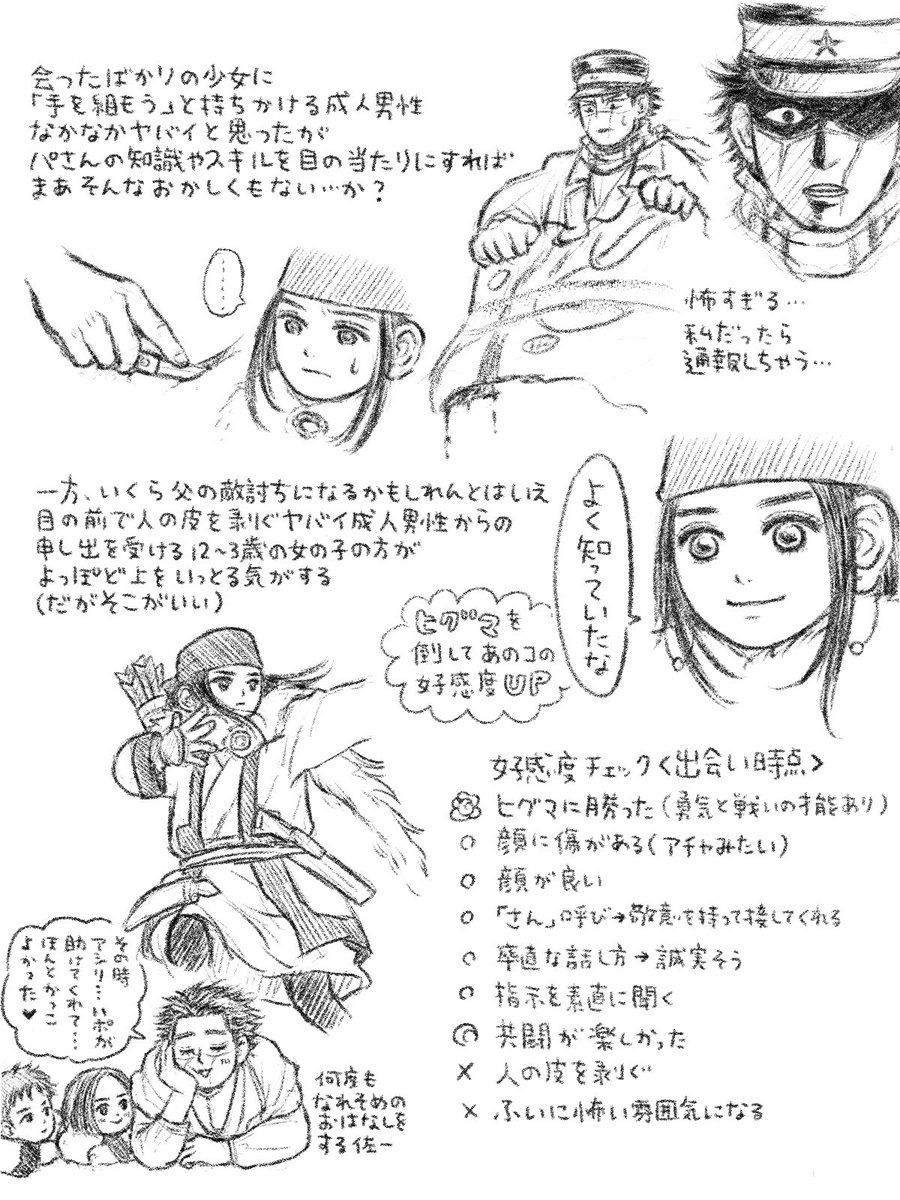 会ったばかりの少女に
「手を組もう」と持ちかける成人男性
なかなかヤバイと思ったが
パさんの知識やスキルを目の当たりにすれば
まあそんなおかしくもない…か?
怖すぎる…
私だったら
通報しちゃう…
一方、いくら父の敵討ちになるかもしれんとはいえ
目の前で人の皮を剥ぐヤバイ成人男性からの
申し出を受ける12~3歳の女の子の方が
よっぽど上をいっとる気がする
(だがそこがいい)
よく知っていたな
ヒグマを
倒してあのコの
好感度UP
好感度チェック<出会い時点>
ヒグマに勝った(勇気と戦いの才能あり)
○ 顔に傷がある(アチャみたい)
○ 顔が良い
○ 「さん」呼び→敬意を持って接してくれる
○ 率直な話し方→誠実そう
○ 指示を素直に聞く
◎ 共闘が楽しかった
× 人の皮を剥ぐ
× ふいに怖い雰囲気になる
その時
アシリ…いポが
助けてくれて…
ほんとかっこ
よかった♥
何度も
なれそめの
おはなしを
する佐一